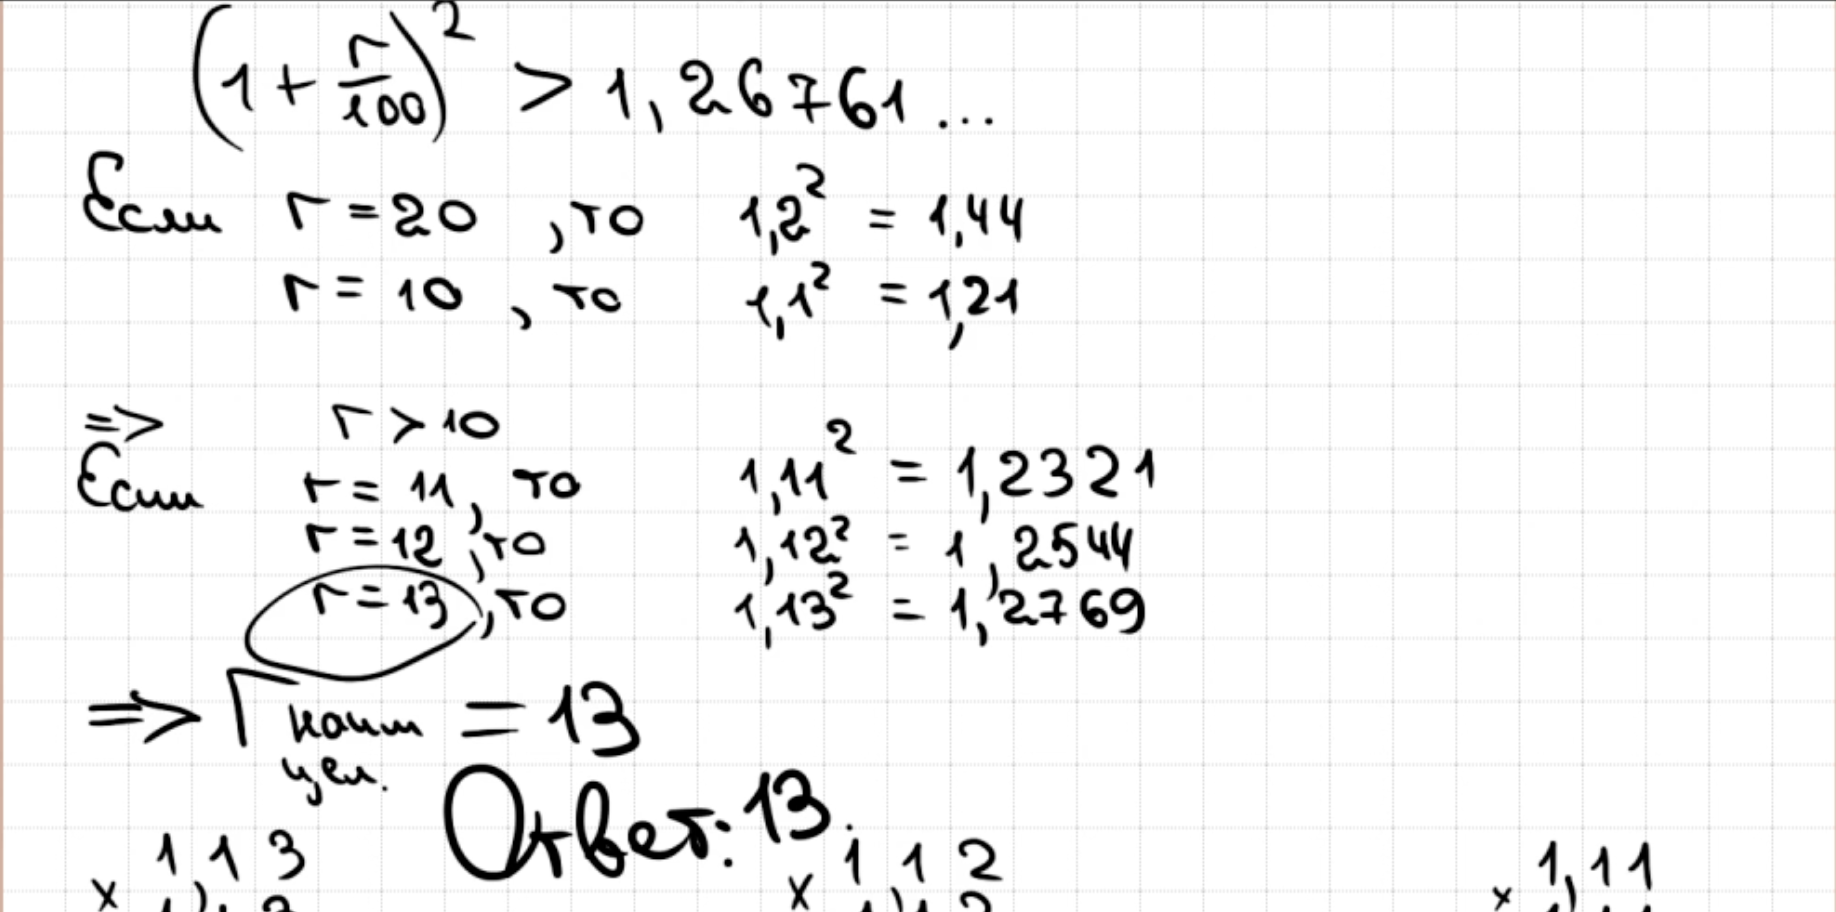 (1 + r/100)² > 1,26761...
Если r = 20 , то 1,2² = 1,44
r = 10 , то 1,1² = 1,21
=> r > 10
Если r = 11, то 1,11² = 1,2321
r = 12, то 1,12² = 1,2544
r = 13, то 1,13² = 1,2769
=> r наим цел. = 13
Ответ: 13.
1,13 1,12 1,11
× × ×